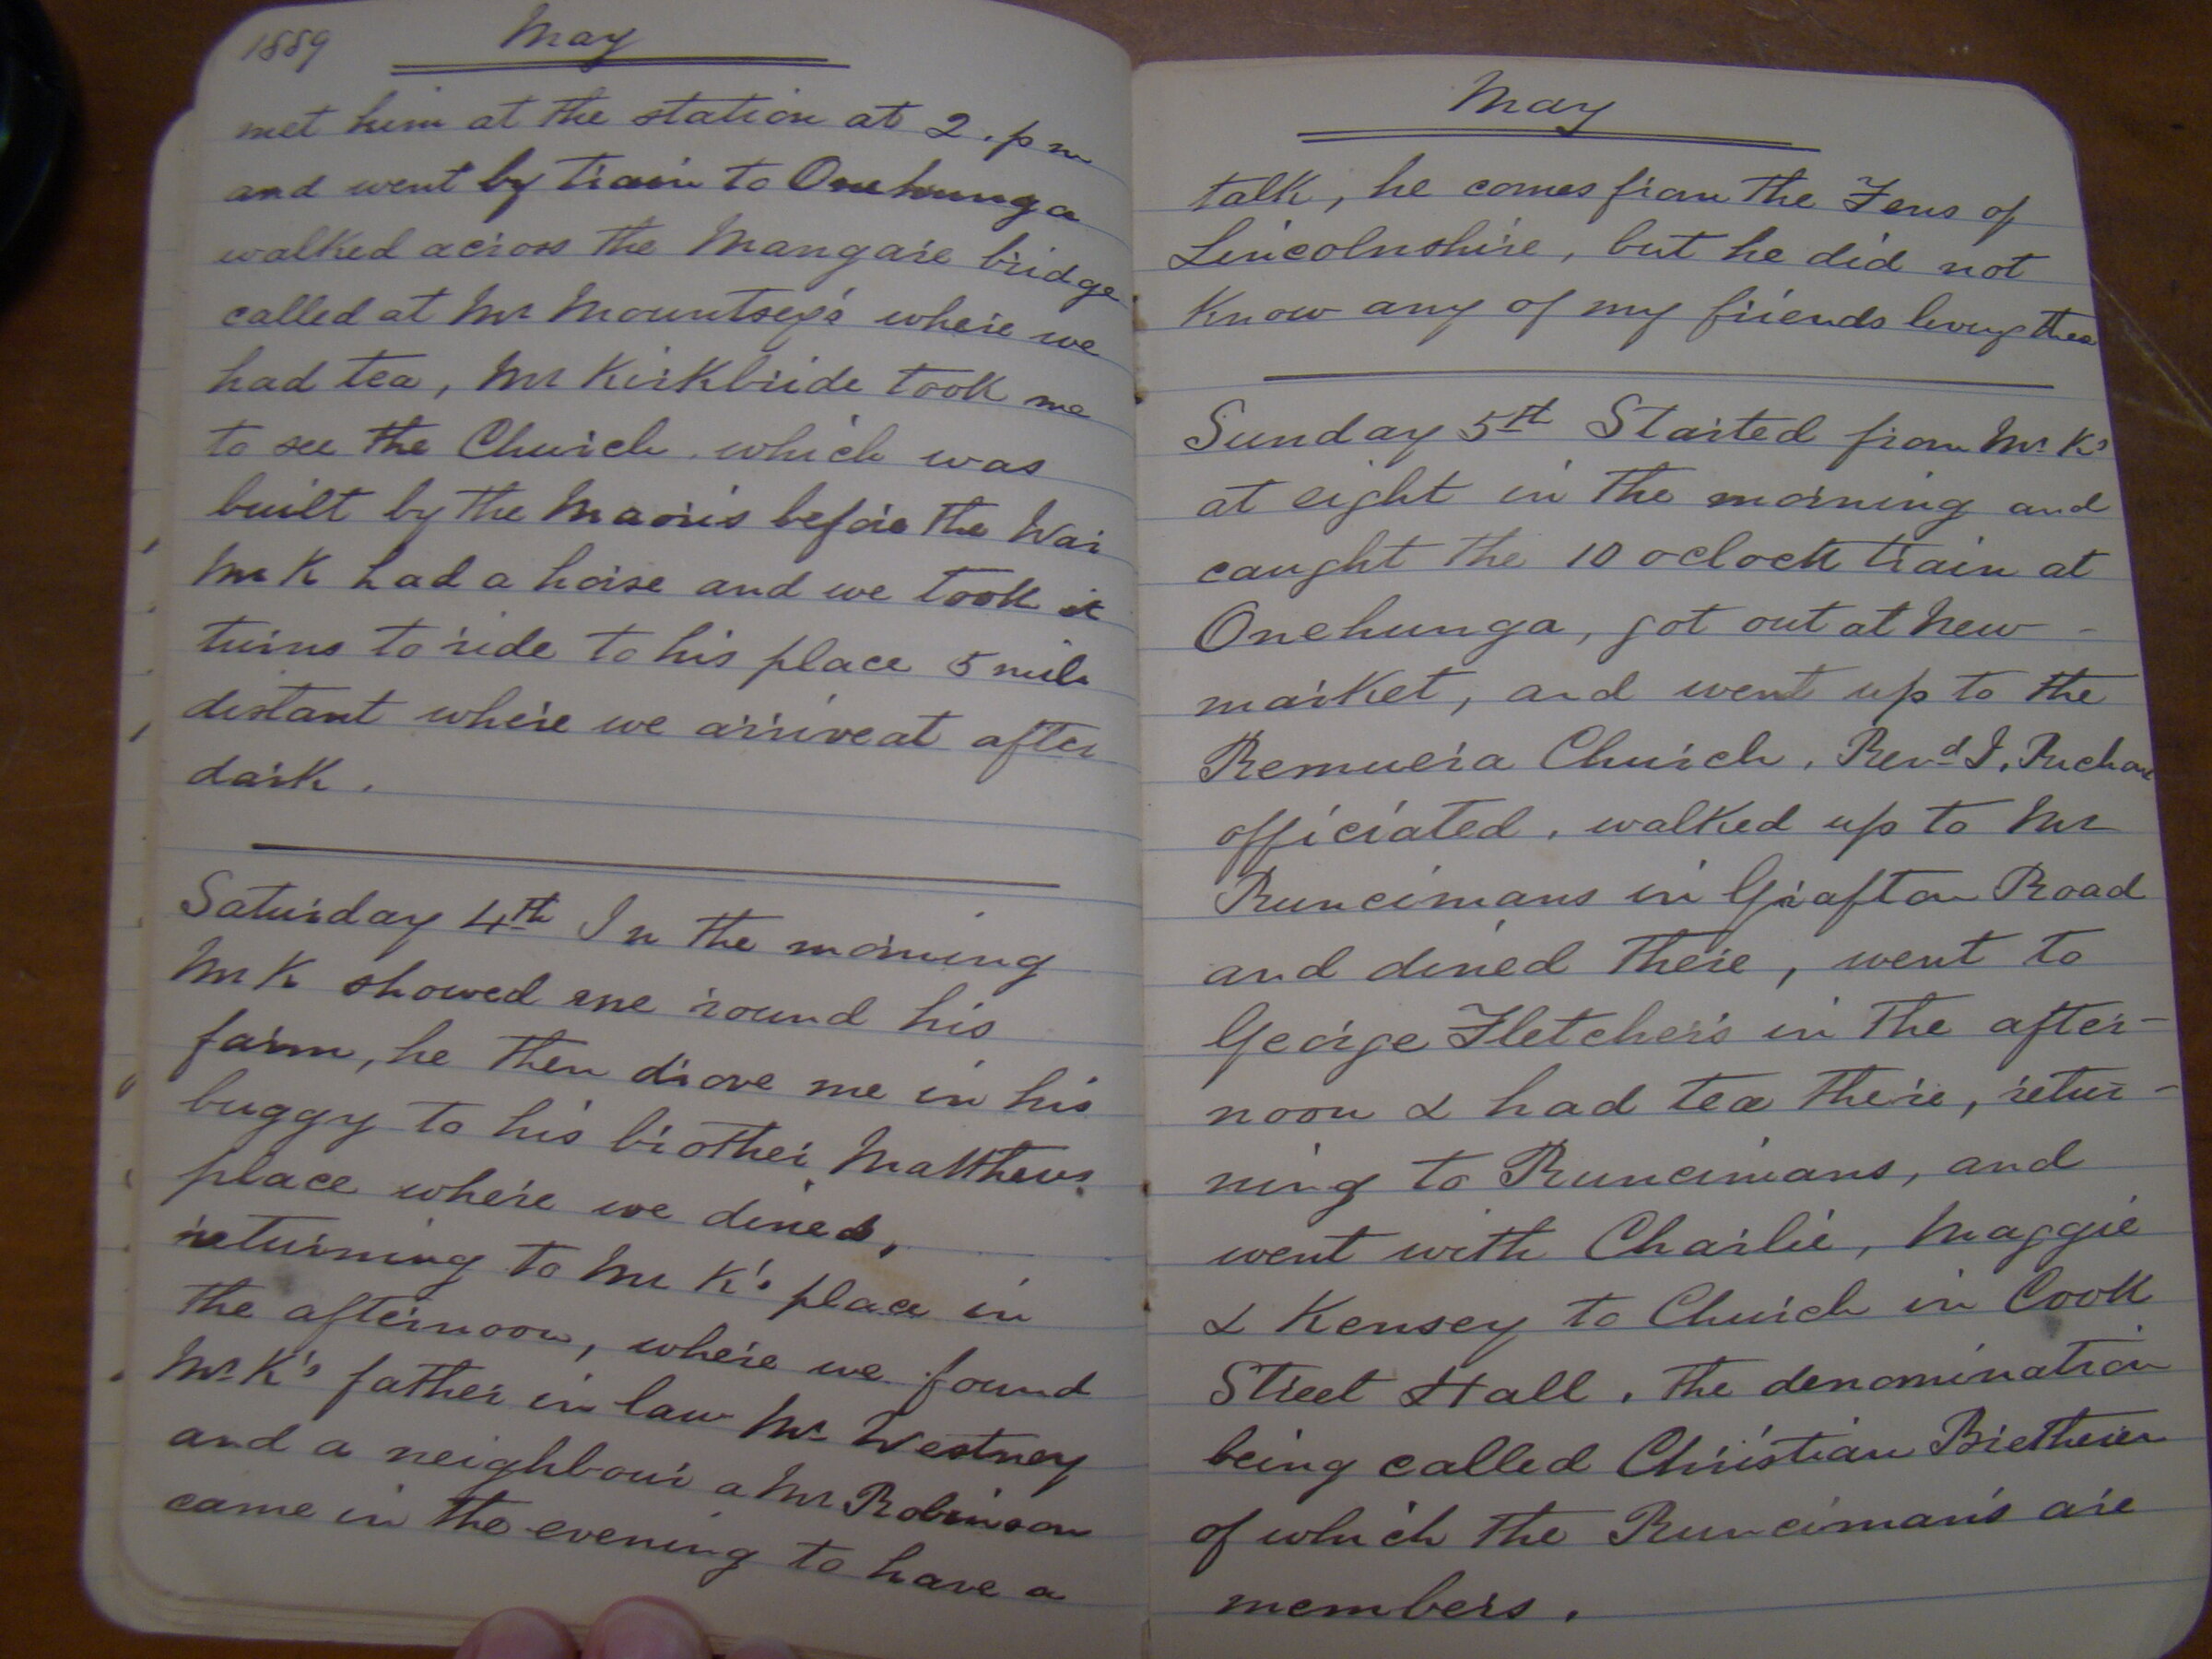 1889
May
met him at the station at 2. p m
and went by train to Onehunga
walked across the Mangare bridge
called at Mr Mountsey's where we
had tea, Mr Kirkbride took me
to see the Church. which was
built by the Maoris before the War
Mr K had a horse and we took it
turns to ride to his place 5 mile
distant where we arrive at after
dark.
Saturday 4th In the morning
Mr K showed me round his
farm, he then drove me in his
buggy to his brother Matthews
place where we dined,
returning to Mr K's place in
the afternoon, where we found
Mr K's father in law Mr Westney
and a neighbour a Mr Robinson
came in the evening to have a
May
talk, he comes from the Fens of
Lincolnshire, but he did not
know any of my friends living there
Sunday 5th Started from Mr K's
at eight in the morning and
caught the 10 oclock train at
Onehunga, got out at New-
market, and went up to the
Remuera Church. Revd
officiated. walked up to Mr
Runcimans in Grafton Road
and dined there, went to
George Fletcher's in the after-
noon & had tea there, retur-
ning to Runcimans, and
went with Charlie, Maggie
& Kensey to Church in Cook
Street Hall. the denomination
being called Christian Bretheren
of which the Runciman's are
members.